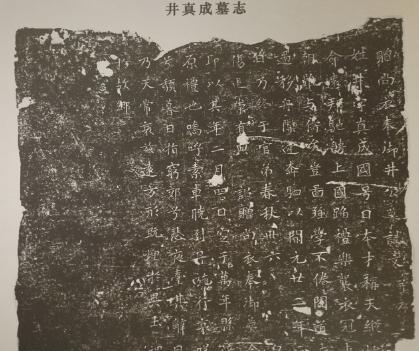 井真成墓志
贈尚衣奉御井公墓誌文
姓井字真成國号日本才稱天縱
命遠邦馳騁上國蹈禮樂襲衣冠
朝難与儔矣豈圖強學不倦聞道
遇移舟隙逢奔駟以開元廿二年
乃終于官弟春秋卅六
傷追崇有典詔贈尚衣奉御葬令
即以其年二月四日窆于萬年縣
原禮也嗚呼素車曉引丹旐行哀
兮頹暮日指窮郊兮悲夜臺其辭曰
乃天常哀茲遠方形既埋于異土魂
歸于故鄉